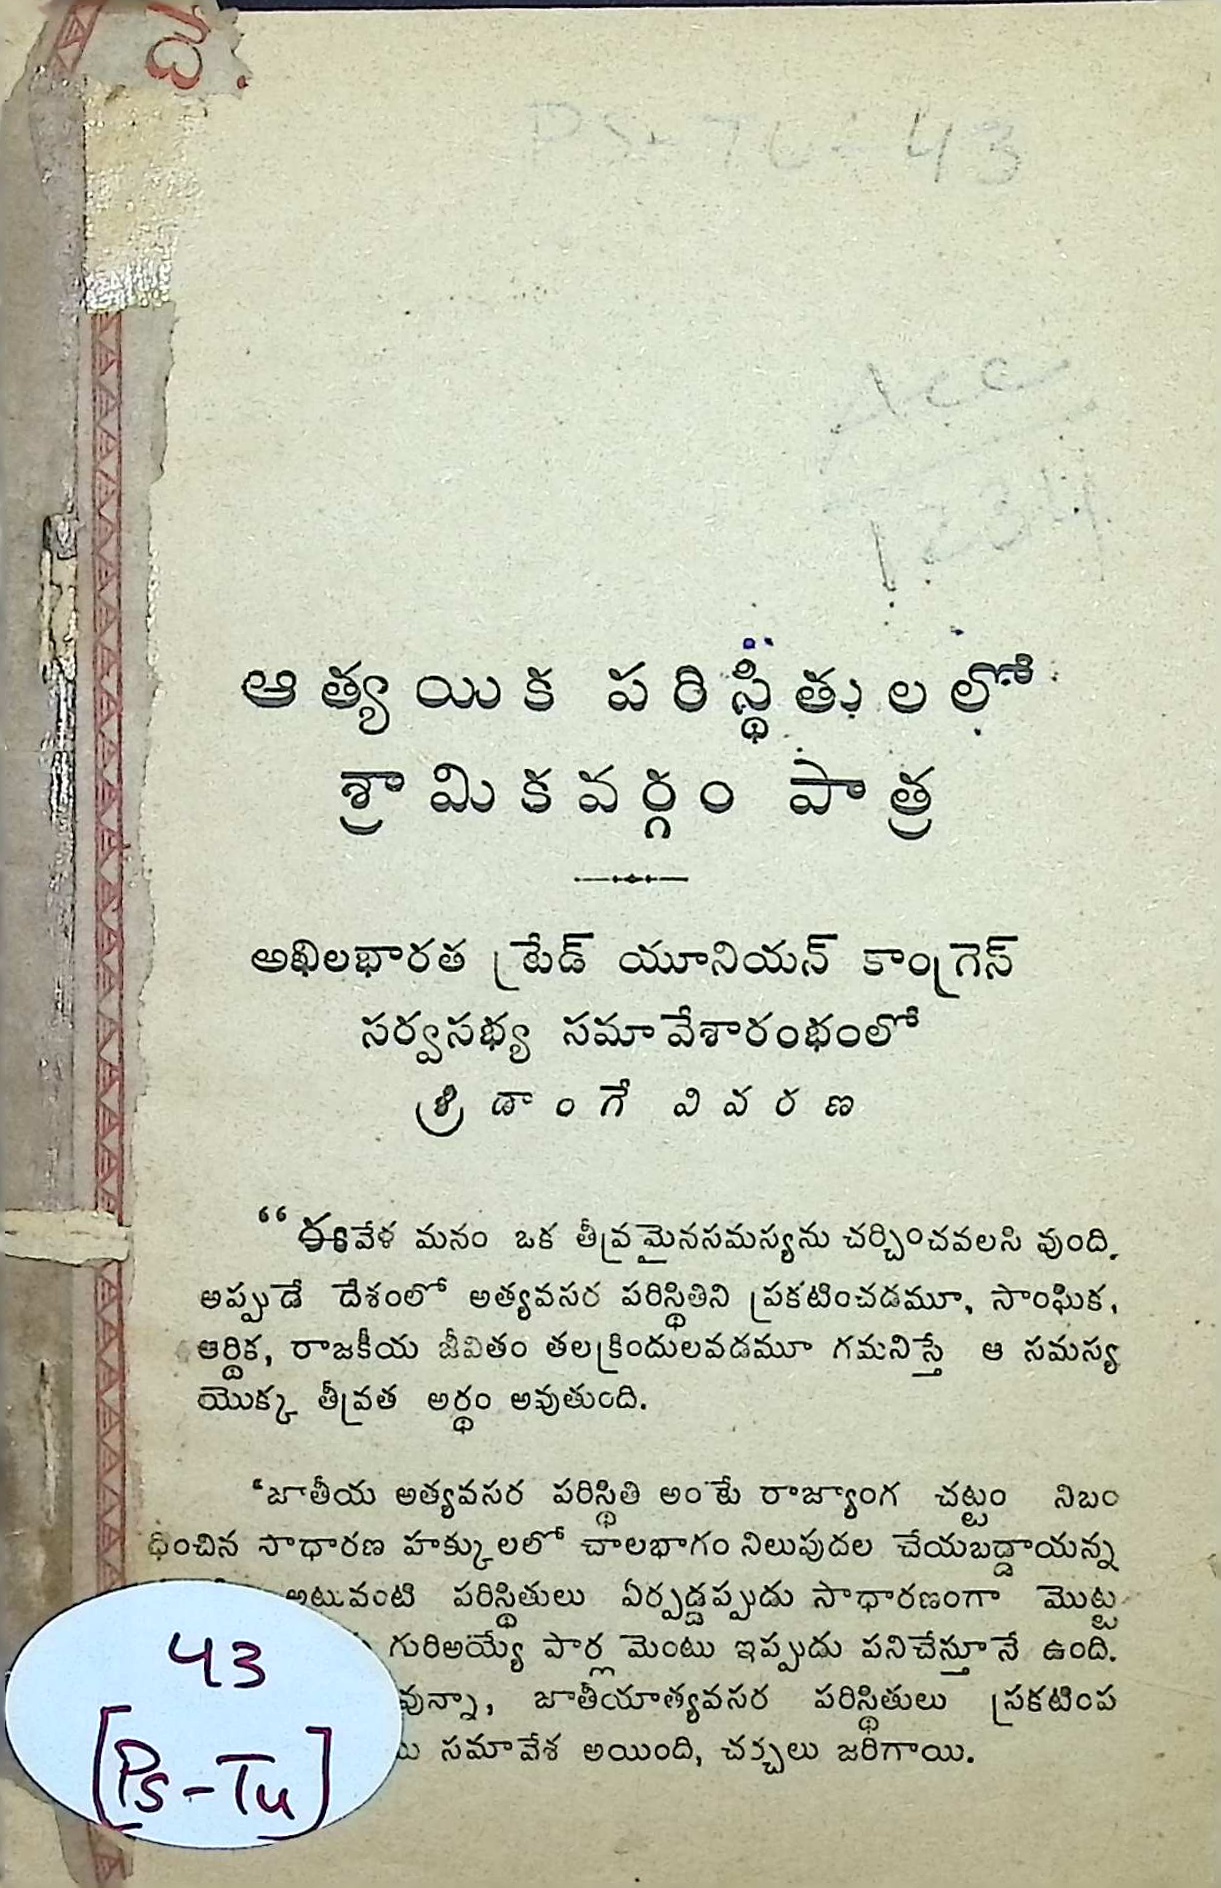 దే.
PS-TU-43
Acc
1234
ఆత్యయిక పరిస్థితులలో
శ్రామికవర్గం పాత్ర
అఖిలభారత ట్రేడ్ యూనియన్ కాంగ్రెస్
సర్వసభ్య సమావేశారంభంలో
శ్రీ డాంగే వివరణ
“ఈవేళ మనం ఒక తీవ్రమైనసమస్యను చర్చించవలసి వుంది.
అప్పుడే దేశంలో అత్యవసర పరిస్థితిని ప్రకటించడమూ, సాంఘిక,
ఆర్థిక, రాజకీయ జీవితం తలక్రిందులవడమూ గమనిస్తే ఆ సమస్య
యొక్క తీవ్రత అర్థం అవుతుంది.
‘జాతీయ అత్యవసర పరిస్థితి అంటే రాజ్యాంగ చట్టం నిబం
ధించిన సాధారణ హక్కులలో చాలభాగం నిలుపుదల చేయబడ్డాయన్న
అటువంటి పరిస్థితులు ఏర్పడ్డప్పుడు సాధారణంగా మొట్ట
గురిఅయ్యే పార్లమెంటు ఇప్పుడు పనిచేస్తూనే ఉంది.
వున్నా, జాతీయాత్యవసర పరిస్థితులు ప్రకటింప
సమావేశ అయింది, చర్చలు జరిగాయి.
43
[Ps-Tu]